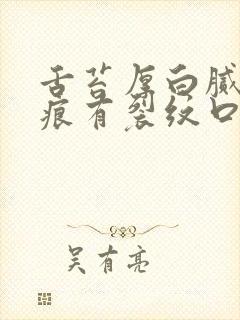 舌苔厚白腻
痕有裂纹口
吴有亮